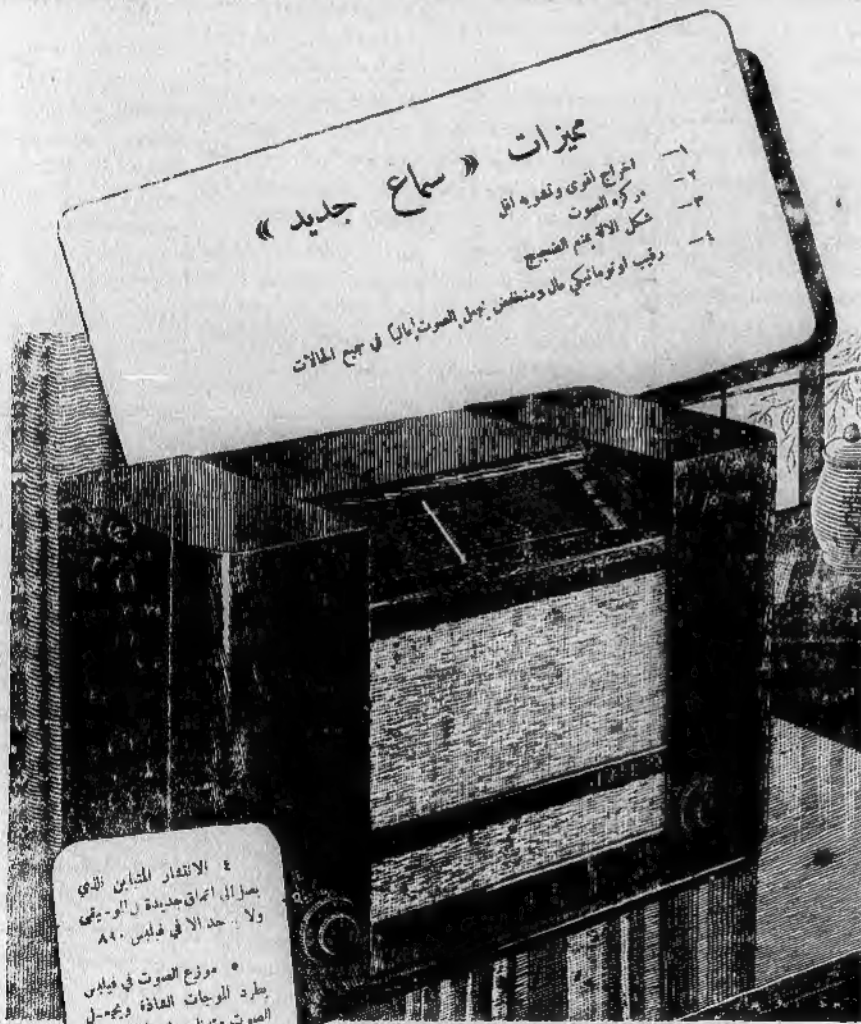 مميزات « سماع جديد »
١— اخراج اقوى وتشويه اقل
٢— مركزه الصوت
٣— شكل الالة يمنع الضجيج
٤— رقيب اوتوماتيكي عال ومنخفض يجعل الصوت عاليا في جميع الحالات
٤ الانتشار المتباين الذي
يصل الى اعماق جديدة في الموسيقى
ولا يوجد الا في فيلبس ٨٩٠
• موزع الصوت في فيلبس
يطرد الموجات الشاذة ويجعل
الصوت